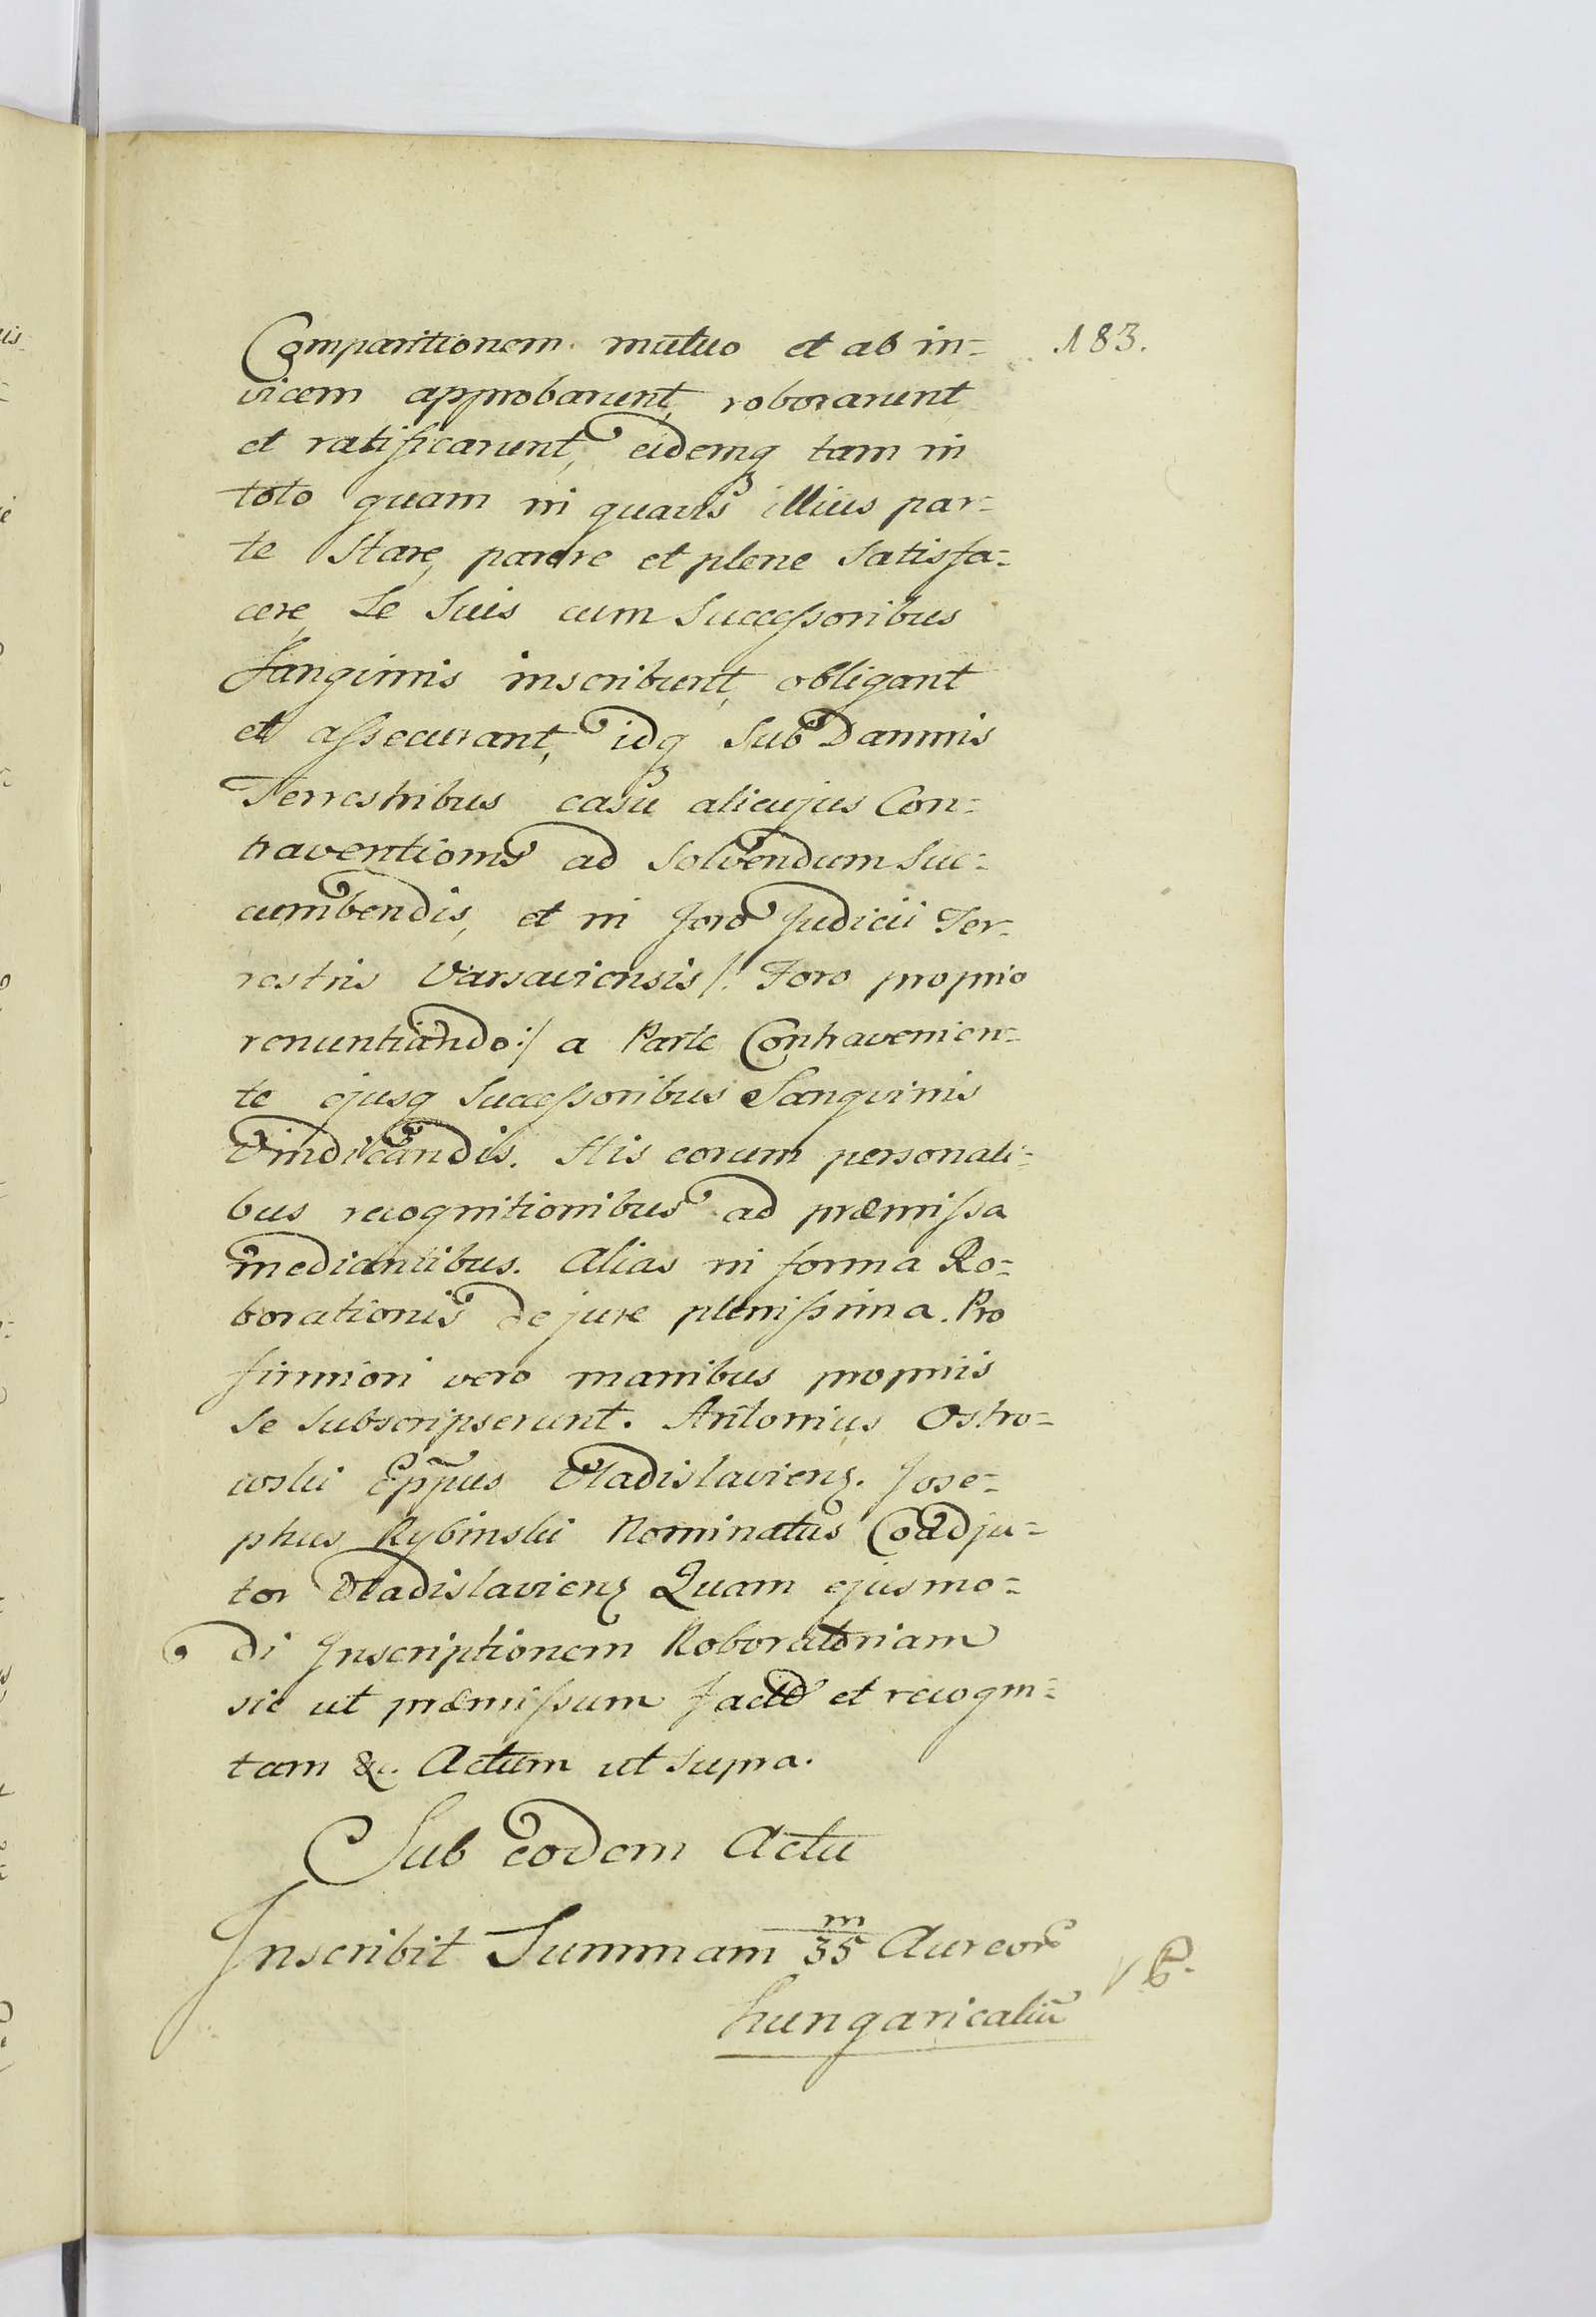 183.
Comparitionem mutuo et ab in=
vicem approbarunt, roborarunt
et ratificarunt, eidemq tam in
toto quam in quavis illius par=
te Stare, parere et plene Satisfa=
cere, Se Suis cum Successoribus
Sangvinis inscribunt, obligant
et assecurant, idq Sub Damnis
Terrestribus casu alicujus Con=
traventionis ad Solvendum Suc=
cumbendis, et in foro Judicii Ter=
restris Varsaviensis /: Foro proprio
renuntiando :/ a Parte Contravenien=
te ejusq Successoribus Sangvinis
Vindicandis. His eorum personali=
bus recognitionibus ad præmissa
mediantibus. Alias in forma Ro=
borationis de jure plenissima. Pro
firmiori vero manibus propriis
Se Subscripserunt. Antonius Ostro=
wski Eppus Vladislaviens. Jose=
phus Rybinski Nominatus Coadju=
tor Vladislaviens Quam ejusmo=
di Inscriptionem Roboratoriam
sic ut præmissum factã et recogni=
tam &c. Actum ut Supra.
Sub eodem Actu
Inscribit Summam m/35 Aureorũ
hungaricaliũ